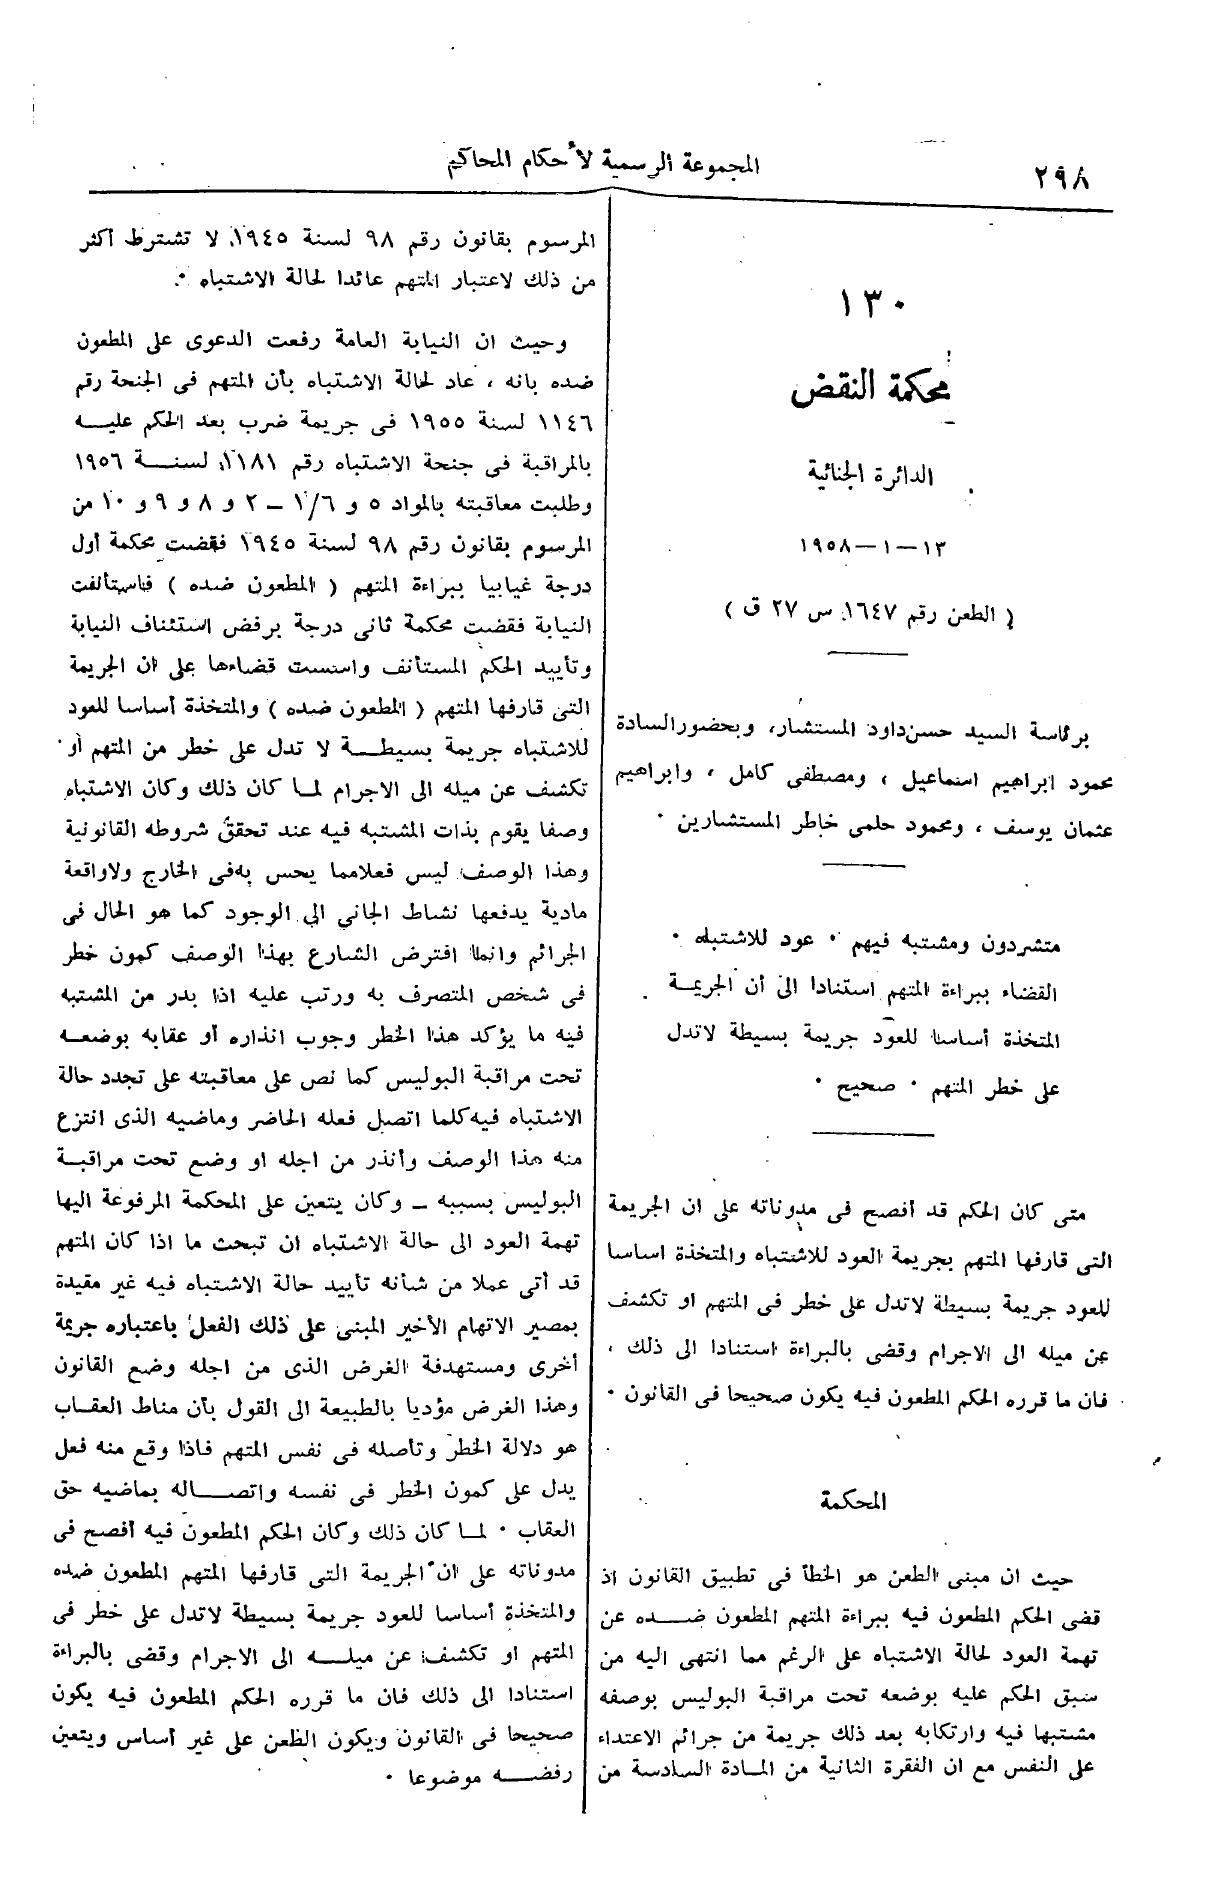 ٢٩٨
المجموعة الرسمية لأحكام المحاكم
١٣٠
محكمة النقض
الدائرة الجنائية
١٣–١–١٩٥٨
( الطعن رقم ١٦٤٧ س ٢٧ ق )
برئاسة السيد حسن داود المستشار، وبحضور السادة
محمود ابراهيم اسماعيل ، ومصطفى كامل ، وابراهيم
عثمان يوسف ، ومحمود حلمى خاطر المستشارين ٠
متشردون ومشتبه فيهم ٠ عود للاشتباه ٠
القضاء ببراءة المتهم استنادا الى أن الجريمة
المتخذة أساسا للعود جريمة بسيطة لاتدل
على خطر المتهم ٠ صحيح ٠
متى كان الحكم قد أفصح فى مدوناته على ان الجريمة
التى قارفها المتهم بجريمة العود للاشتباه والمتخذة اساسا
للعود جريمة بسيطة لاتدل على خطر فى المتهم او تكشف
عن ميله الى الاجرام وقضى بالبراءة استنادا الى ذلك ،
فان ما قرره الحكم المطعون فيه يكون صحيحا فى القانون ٠
المحكمة
حيث ان مبنى الطعن هو الخطأ فى تطبيق القانون اذ
قضى الحكم المطعون فيه ببراءة المتهم المطعون ضده عن
تهمة العود لحالة الاشتباه على الرغم مما انتهى اليه من
سبق الحكم عليه بوضعه تحت مراقبة البوليس بوصفه
مشتبها فيه وارتكابه بعد ذلك جريمة من جرائم الاعتداء
على النفس مع ان الفقرة الثانية من المادة السادسة من
المرسوم بقانون رقم ٩٨ لسنة ١٩٤٥ لا تشترط أكثر
من ذلك لاعتبار المتهم عائدا لحالة الاشتباه ٠
وحيث ان النيابة العامة رفعت الدعوى على المطعون
ضده بانه ، عاد لحالة الاشتباه بأن المتهم فى الجنحة رقم
١١٤٦ لسنة ١٩٥٥ فى جريمة ضرب بعد الحكم عليه
بالمراقبة فى جنحة الاشتباه رقم ١١٨١ لسنة ١٩٥٦
وطلبت معاقبته بالمواد ٥ و ١/٦ – ٢ و ٨ و ٩ و ١٠ من
المرسوم بقانون رقم ٩٨ لسنة ١٩٤٥ فقضت محكمة أول
درجة غيابيا ببراءة المتهم ( المطعون ضده ) فاستألفت
النيابة فقضت محكمة ثانى درجة برفض استئناف النيابة
وتأييد الحكم المستأنف واسست قضاءها على ان الجريمة
التى قارفها المتهم ( المطعون ضده ) والمتخذة أساسا للعود
للاشتباه جريمة بسيطة لا تدل على خطر من المتهم أو
تكشف عن ميله الى الاجرام لما كان ذلك وكان الاشتباه
وصفا يقوم بذات المشتبه فيه عند تحقق شروطه القانونية
وهذا الوصف ليس فعلا مما يحس به فى الخارج ولا واقعة
مادية يدفعها نشاط الجاني الى الوجود كما هو الحال فى
الجرائم وانما افترض الشارع بهذا الوصف كمون خطر
فى شخص المتصرف به ورتب عليه اذا بدر من المشتبه
فيه ما يؤكد هذا الخطر وجوب انذاره أو عقابه بوضعه
تحت مراقبة البوليس كما نص على معاقبته على تجدد حالة
الاشتباه فيه كلما اتصل فعله الحاضر وماضيه الذى انتزع
منه هذا الوصف وأنذر من اجله او وضع تحت مراقبة
البوليس بسببه – وكان يتعين على المحكمة المرفوعة اليها
تهمة العود الى حالة الاشتباه ان تبحث ما اذا كان المتهم
قد أتى عملا من شأنه تأييد حالة الاشتباه فيه غير مقيدة
بمصير الاتهام الأخير المبنى على ذلك الفعل باعتباره جريمة
أخرى ومستهدفة الغرض الذى من اجله وضع القانون
وهذا الغرض مؤديا بالطبيعة الى القول بأن مناط العقاب
هو دلالة الخطر وتأصله فى نفس المتهم فاذا وقع منه فعل
يدل على كمون الخطر فى نفسه واتصاله بماضيه حق
العقاب ٠ لما كان ذلك وكان الحكم المطعون فيه أفصح فى
مدوناته على ان الجريمة التى قارفها المتهم المطعون ضده
والمتخذة أساسا للعود جريمة بسيطة لاتدل على خطر فى
المتهم او تكشف عن ميله الى الاجرام وقضى بالبراءة
استنادا الى ذلك فان ما قرره الحكم المطعون فيه يكون
صحيحا فى القانون ويكون الطعن على غير أساس ويتعين
رفضه موضوعا ٠